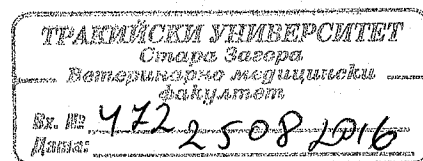 ТРАКИЙСКИ УНИВЕРСИТЕТ
Стара Загора
Ветеринарно медицински
факултет
Вх. № 472
Дата: 25 08 2016